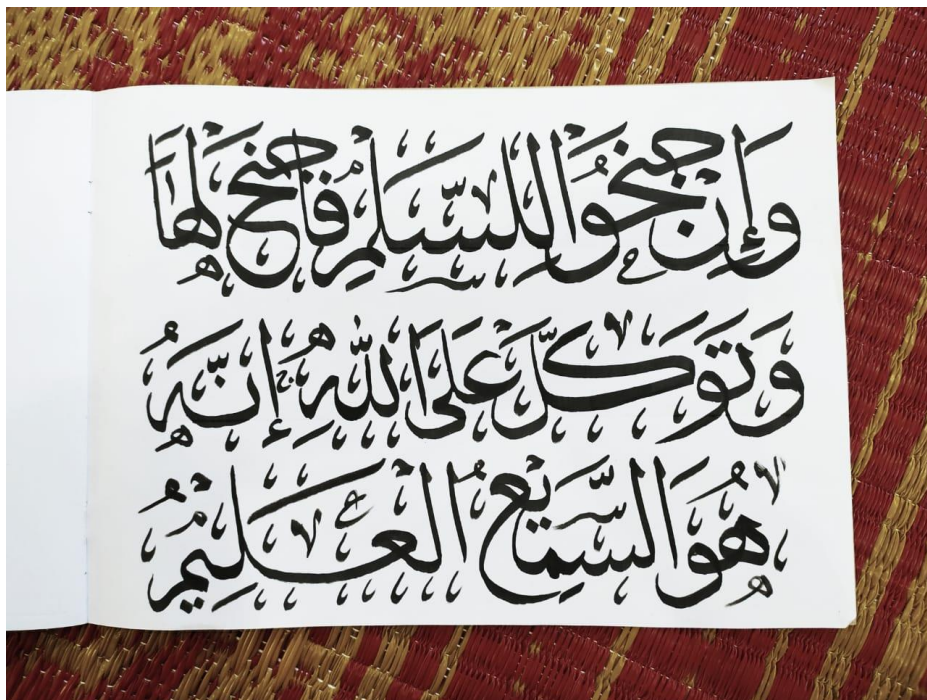 وَإِنْ جَنَحُوا لِلسَّلْمِ فَاجْنَحْ لَهَا
وَتَوَكَّلْ عَلَى اللَّهِ إِنَّهُ
هُوَ السَّمِيعُ الْعَلِيمُ